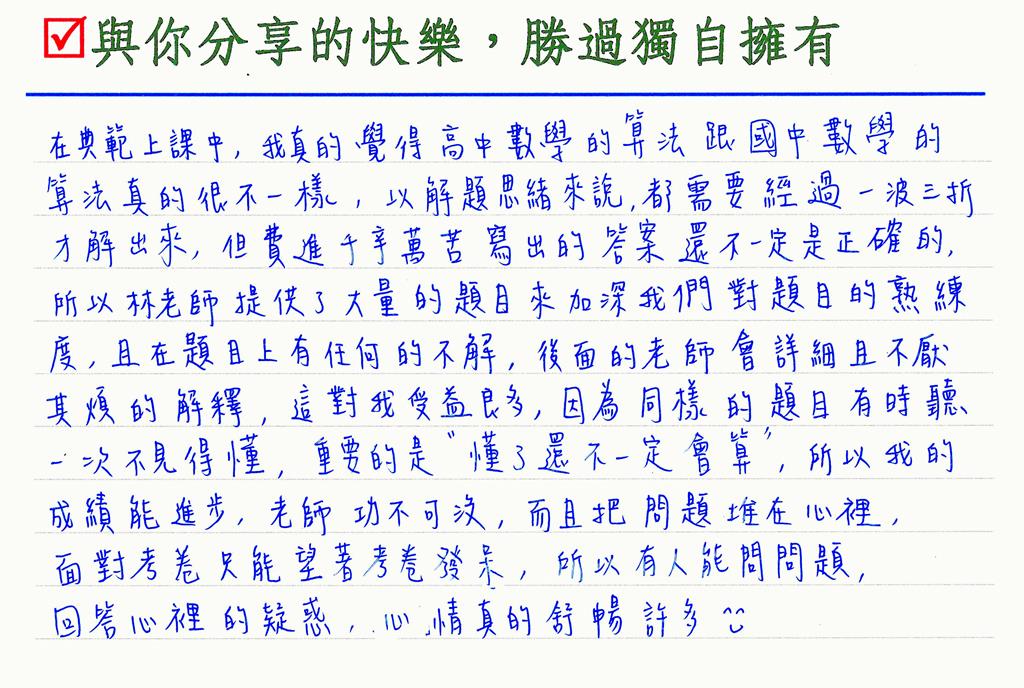 與你分享的快樂，勝過獨自擁有
在典範上課中，我真的覺得高中數學的算法跟國中數學的
算法真的很不一樣，以解題思緒來說，都需要經過一波三折
才解出來，但費進千辛萬苦寫出的答案還不一定是正確的，
所以林老師提供了大量的題目來加深我們對題目的熟練
度，且在題目上有任何的不解，後面的老師會詳細且不厭
其煩的解釋，這對我受益良多，因為同樣的題目有時聽
一次不見得懂，重要的是“懂了還不一定會算”，所以我的
成績能進步，老師功不可沒，而且把問題堆在心裡，
面對考卷只能望著考卷發呆，所以有人能問問題，
回答心裡的疑惑，心情真的舒暢許多